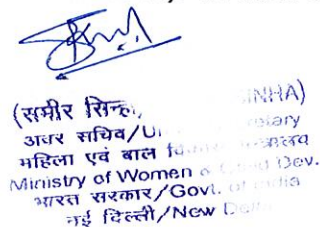 (समीर सिन्हा, SINHA)
अवर सचिव/
महिला एवं बाल
Ministry of Women & Child Dev.
भारत सरकार/Govt. of India
नई दिल्ली/New